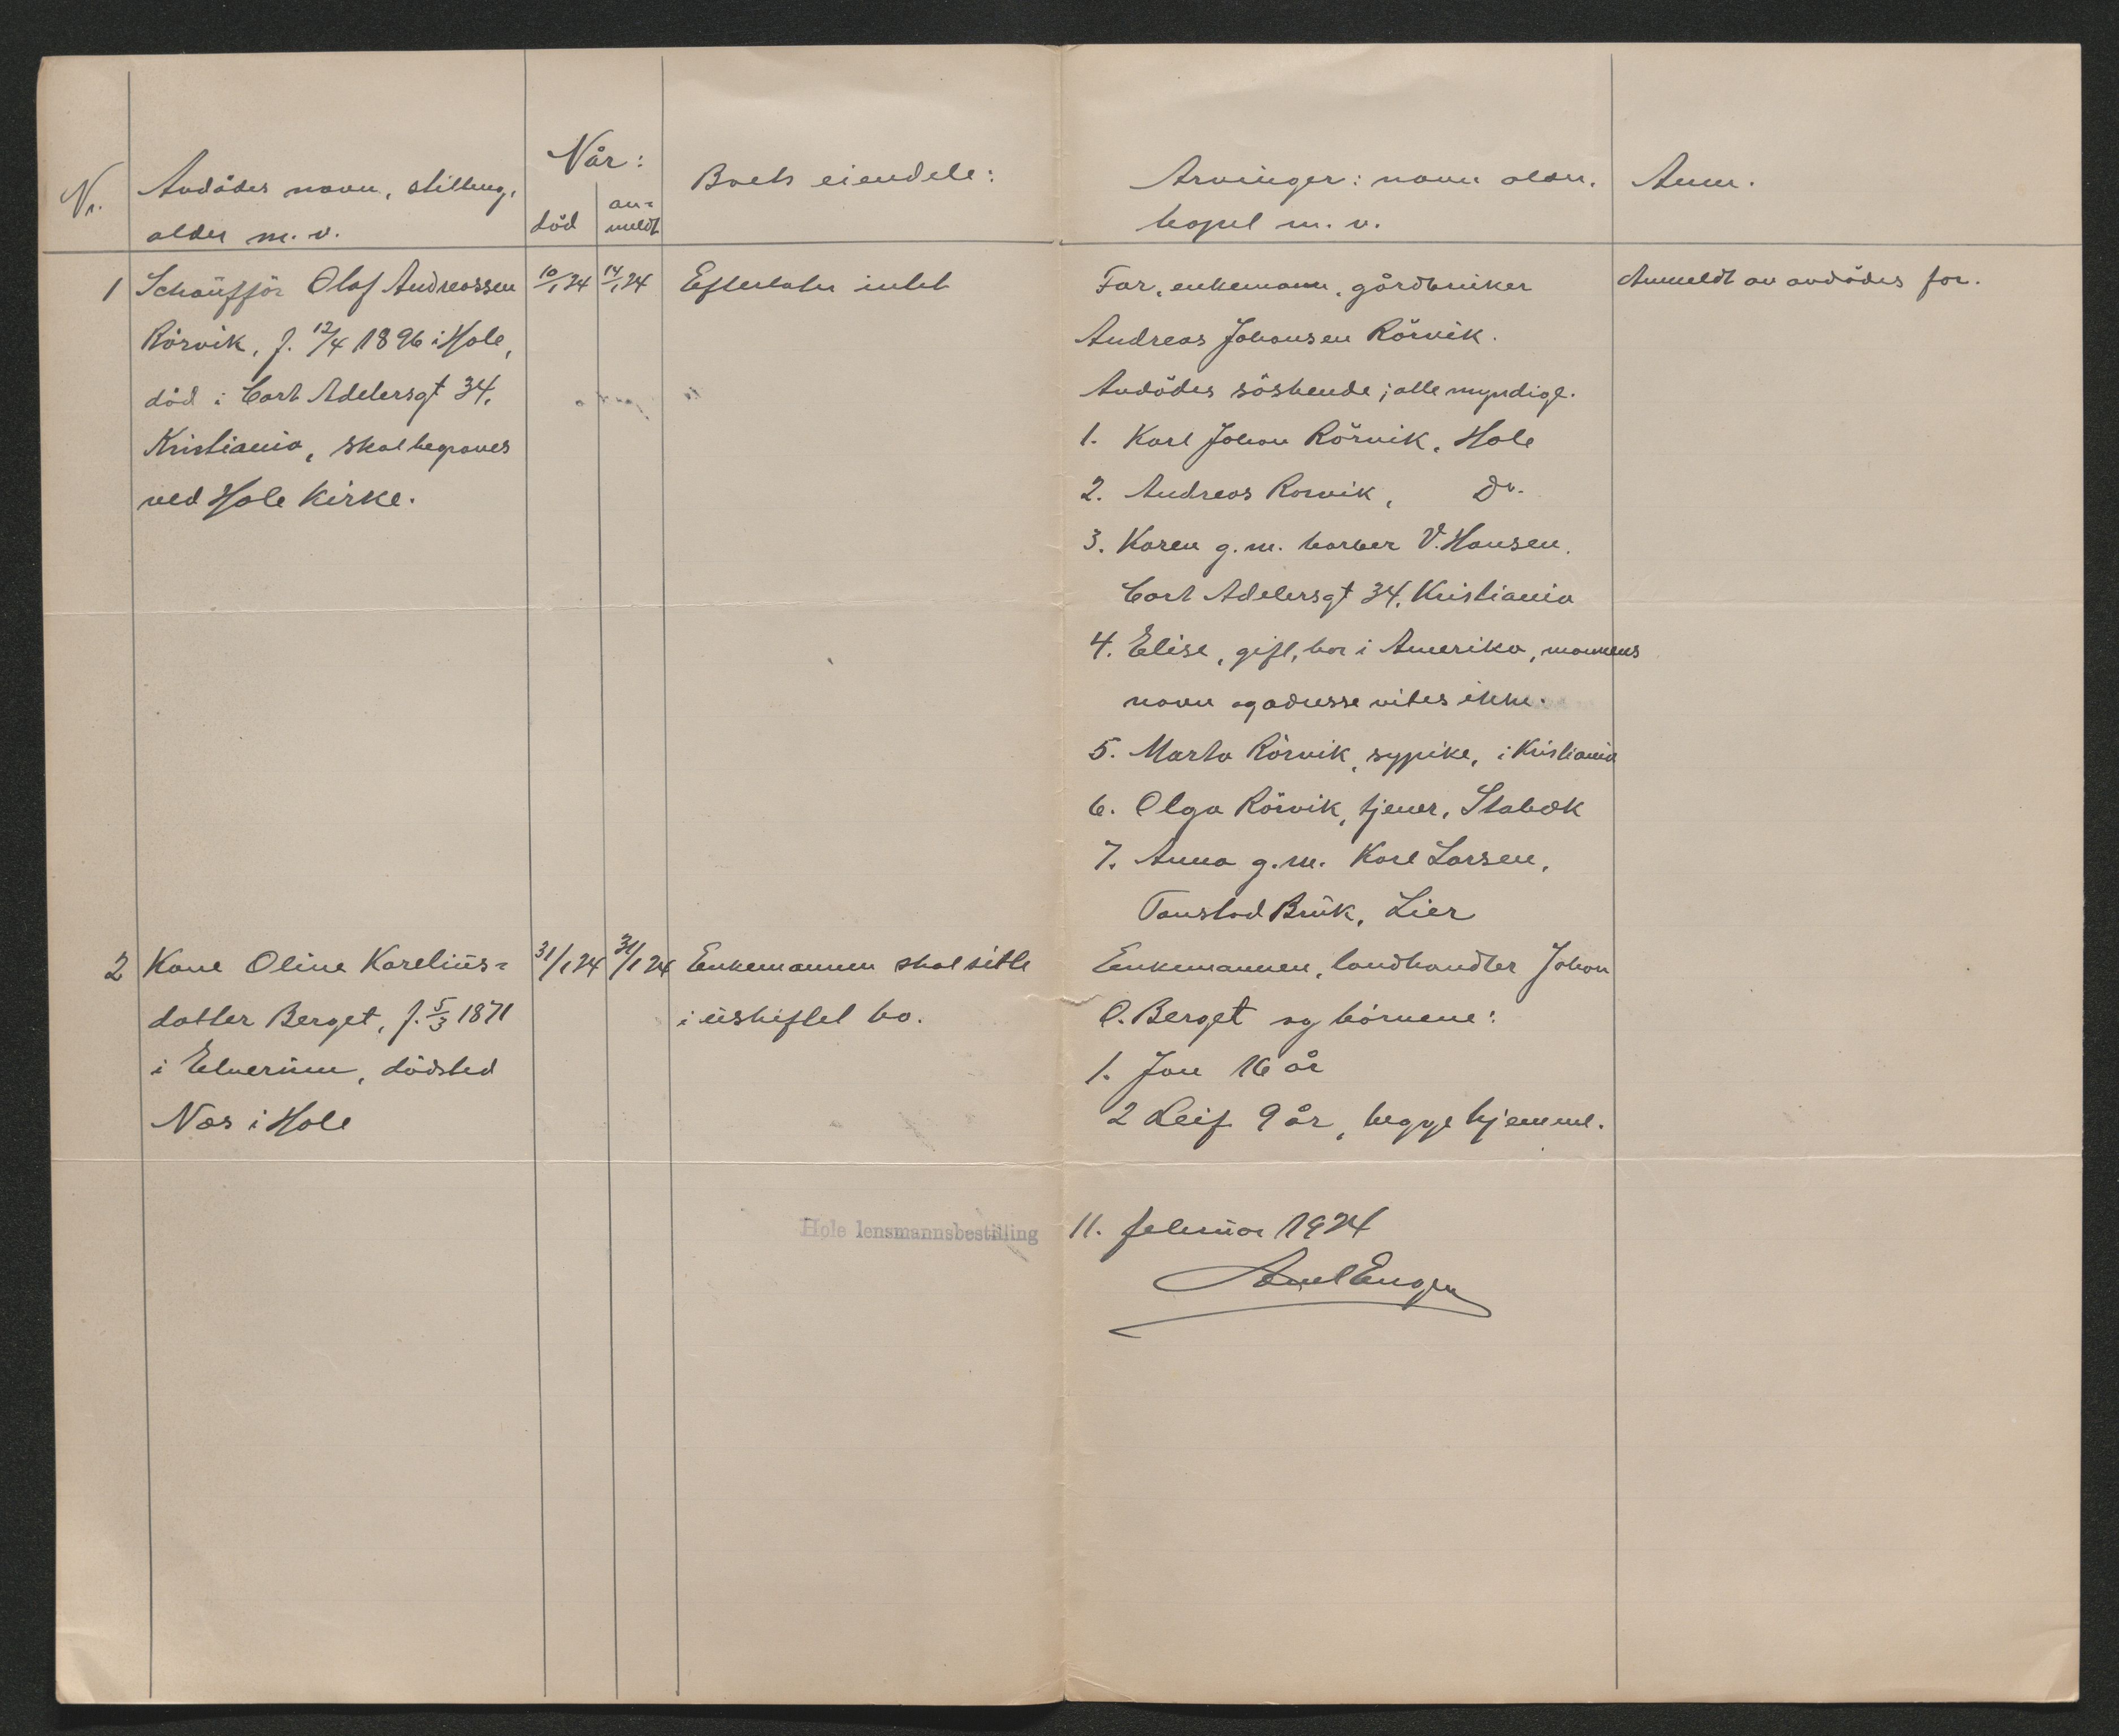 Nr.
Avdödes navn, stilling,
alder m. v.
Når:
död
an-
meldt
Boets eiendele:
Arvinger: navn alder,
bopel m. v.
Anm.
1 Schauffør Olaf Andreassen
Rörvik, f. 12/4 1896 i Hole,
död i Cort Adelersgt 34,
Kristiania, skal begraves
ved Hole Kirke.
10/1 24
14/1 24
Efterlater intet
Far, enkemann, gårdbruker
Andreas Johansen Rörvik.
Avdödes söskende; alle myndige.
1. Karl Johan Rörvik, Hole
2. Andreas Rorvik, Do.
3. Karen g.m. barber V. Hansen,
Cort Adelersgt 34, Kristiania
4. Elise, gift, bor i Amerika, mannens
navn og adresse vites ikke.
5. Marta Rörvik, sypike, i Kristiania
6. Olga Rörvik, tjener, Stabæk
7. Anna g.m. Kare Larsen,
Tanstad Bruk, Lier
Anmeldt av avdödes far.
2 Kone Oline Karelius-
datter Berget, f. 5/3 1871
i Elverum, dödsted
Næs i Hole
31/1 24
31/1 24
Enkemannen skal sitte
i uskiftet bo.
Enkemannen, landhandler Johan
O. Berget og börnene:
1. Jon 16 år
2 Leif 9 år, begge hjemme.
Hole lensmannsbestilling
11. februar 1924